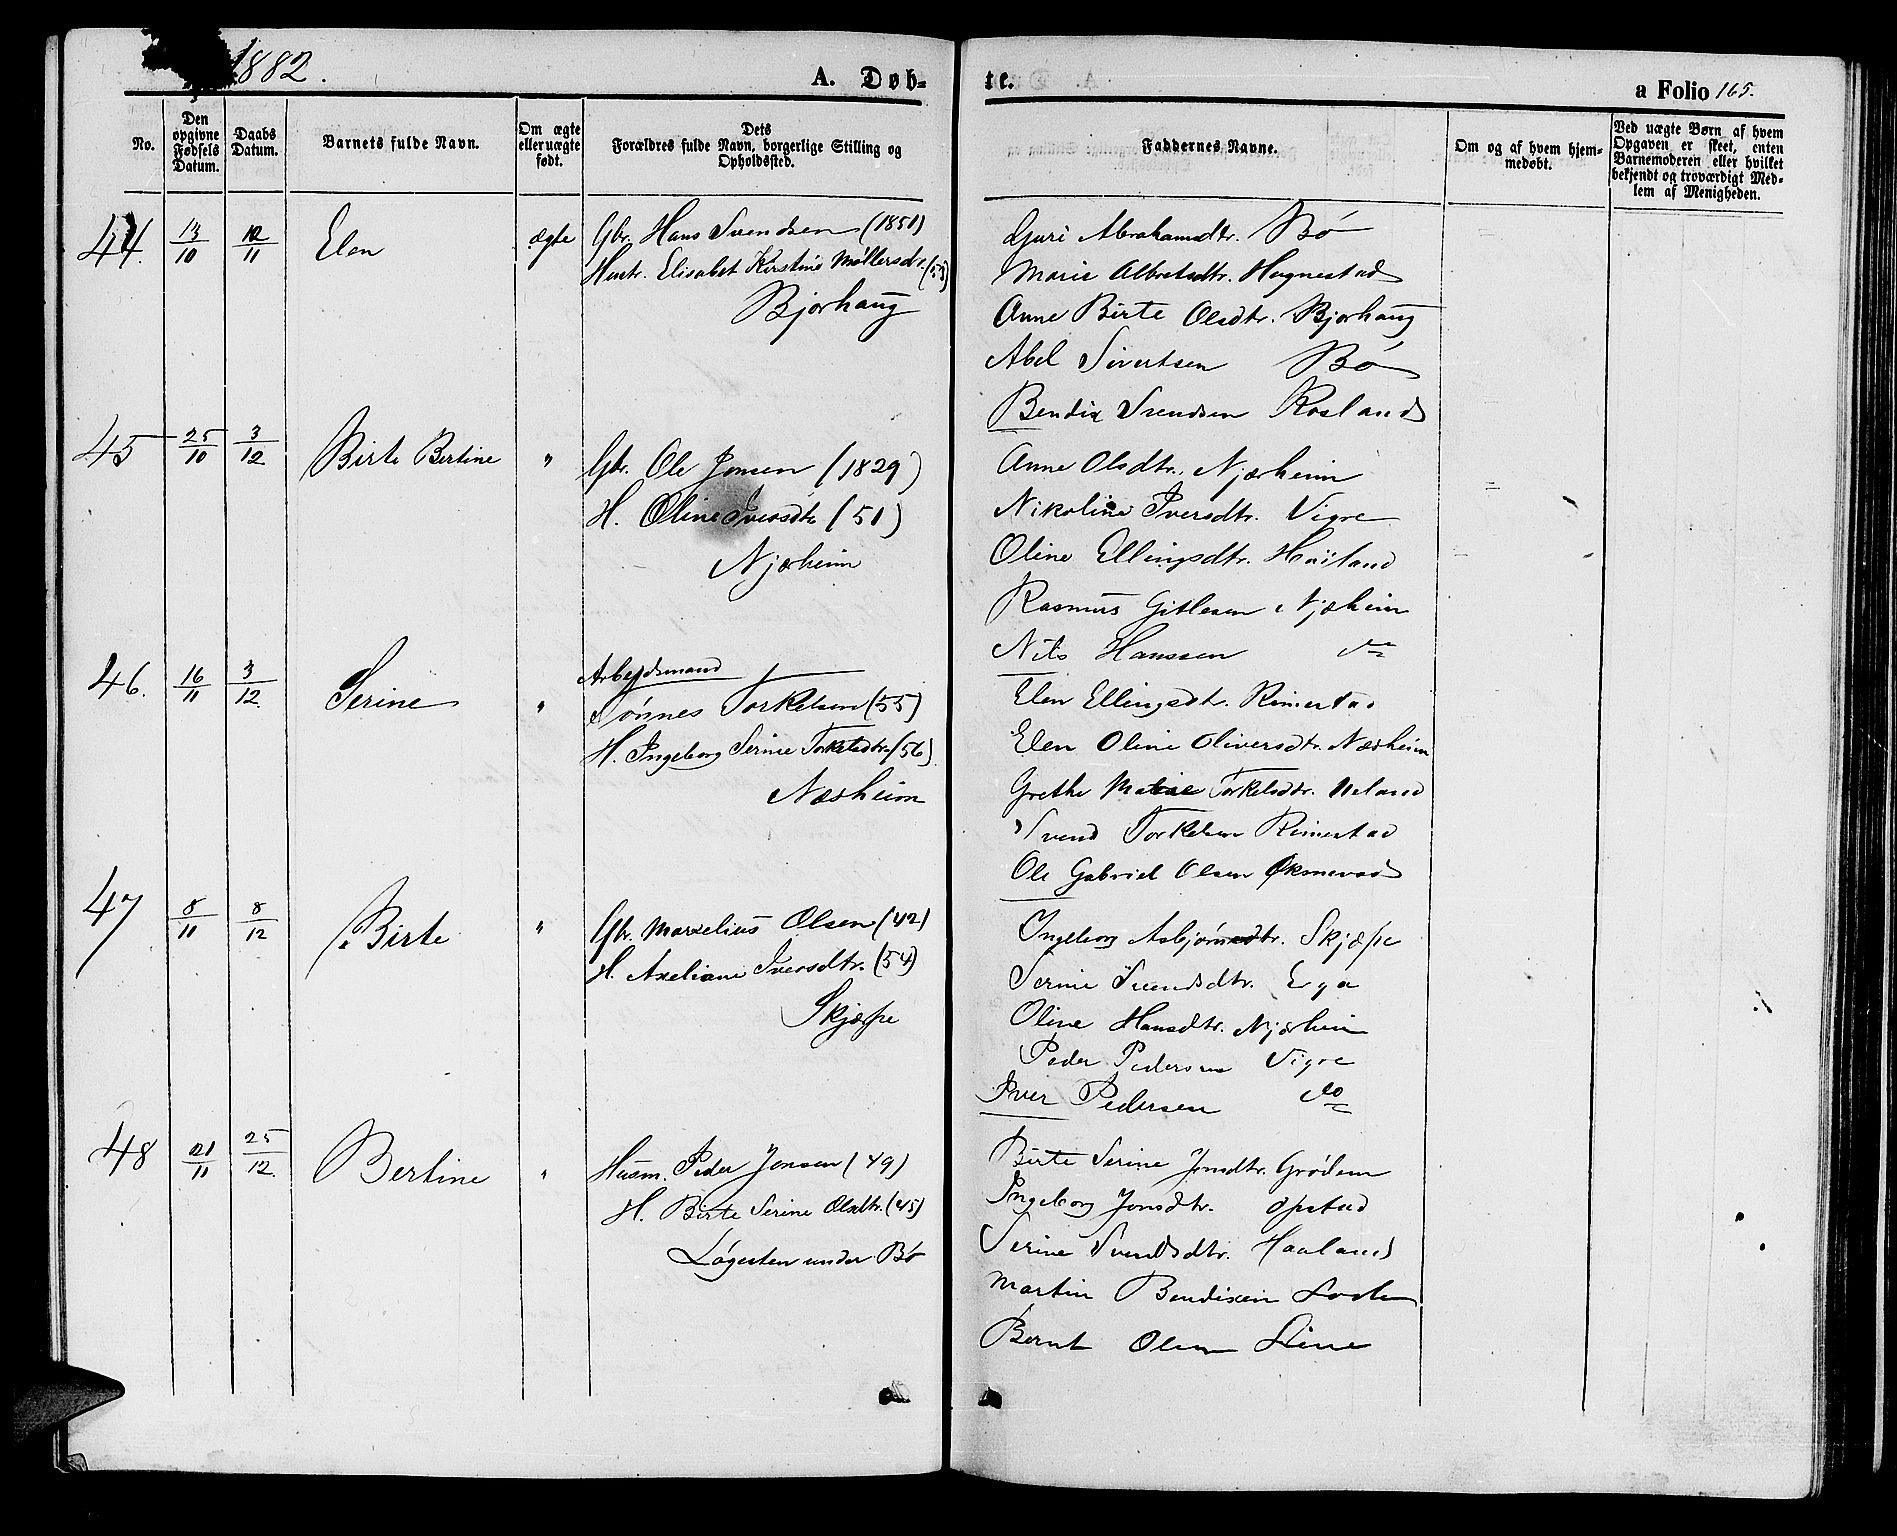 1882.
A. Døb-
te.
a Folio 165.
No.
Den opgivne Fødsels Datum.
Daabs Datum.
Barnets fulde Navn.
Om ægte eller uægte født.
Dets Forældres fulde Navn, borgerlige Stilling og Opholdssted.
Faddernes Navne.
Om og af hvem hjemmedøbt.
Ved uægte Børn af hvem Opgaven er skeet, enten Barnemoderen eller hvilket bekjendt og troværdigt Medlem af Menigheden.
44. 13/10 12/11 Elen ægte
Gbr. Hans Svendsen (1851)
Hustr. Elisabet Kirstine Møllersdtr. (53)
Bjorhaug
Guri Abrahamsdtr. Bø
Marie Albretsdtr. Hognestad
Anne Birte Olsdtr. Bjorhaug
Abel Sivertsen Bø
Bendix Svendsen Rosland
45 25/10 3/12 Birte Bertine "
Gbr. Ole Jonsen (1829)
H. Oline Iversdtr (51)
Njærheim
Anne Olsdtr. Njærheim
Nikoline Iversdtr. Vigre
Oline Ellingsdtr. Høiland
Rasmus Gitlesen Njæheim
Nils Hanssen do
46. 16/11 3/12. Serine "
Arbejdsmand
Tønnes Torkelsen (55)
H. Ingeborg Serine Torkelsdtr. (56)
Næsheim
Elen Ellingsdtr. Rimestad
Elen Oline Oliversdtr. Næsheim
Grethe Malene Torkelsdtr. Ueland
Svend Torkelsen Rimestad
Ole Gabriel Olsen Øksnevad
47 8/11 8/12 Birte "
Gbr. Marselius Olsen (42)
H. Axeliane Iversdtr. (54)
Skjæpe
Ingeborg Asbjørnsdtr. Skjæpe
Serine Svendsdtr. Erga
Oline Hansdtr. Njærheim
Peder Pedersen Vigre
Iver Pedersen do
48 21/11 25/12. Bertine "
Husm. Peder Jonsen (49)
H. Birte Serine Olsdtr. (45)
Løgesten under Bø
Birte Serine Jonsdtr. Grødem
Ingeborg Jonsdtr. Opstad
Serine Svendsdtr. Haaland
Martin Bendixen
Bernt Olsen Line